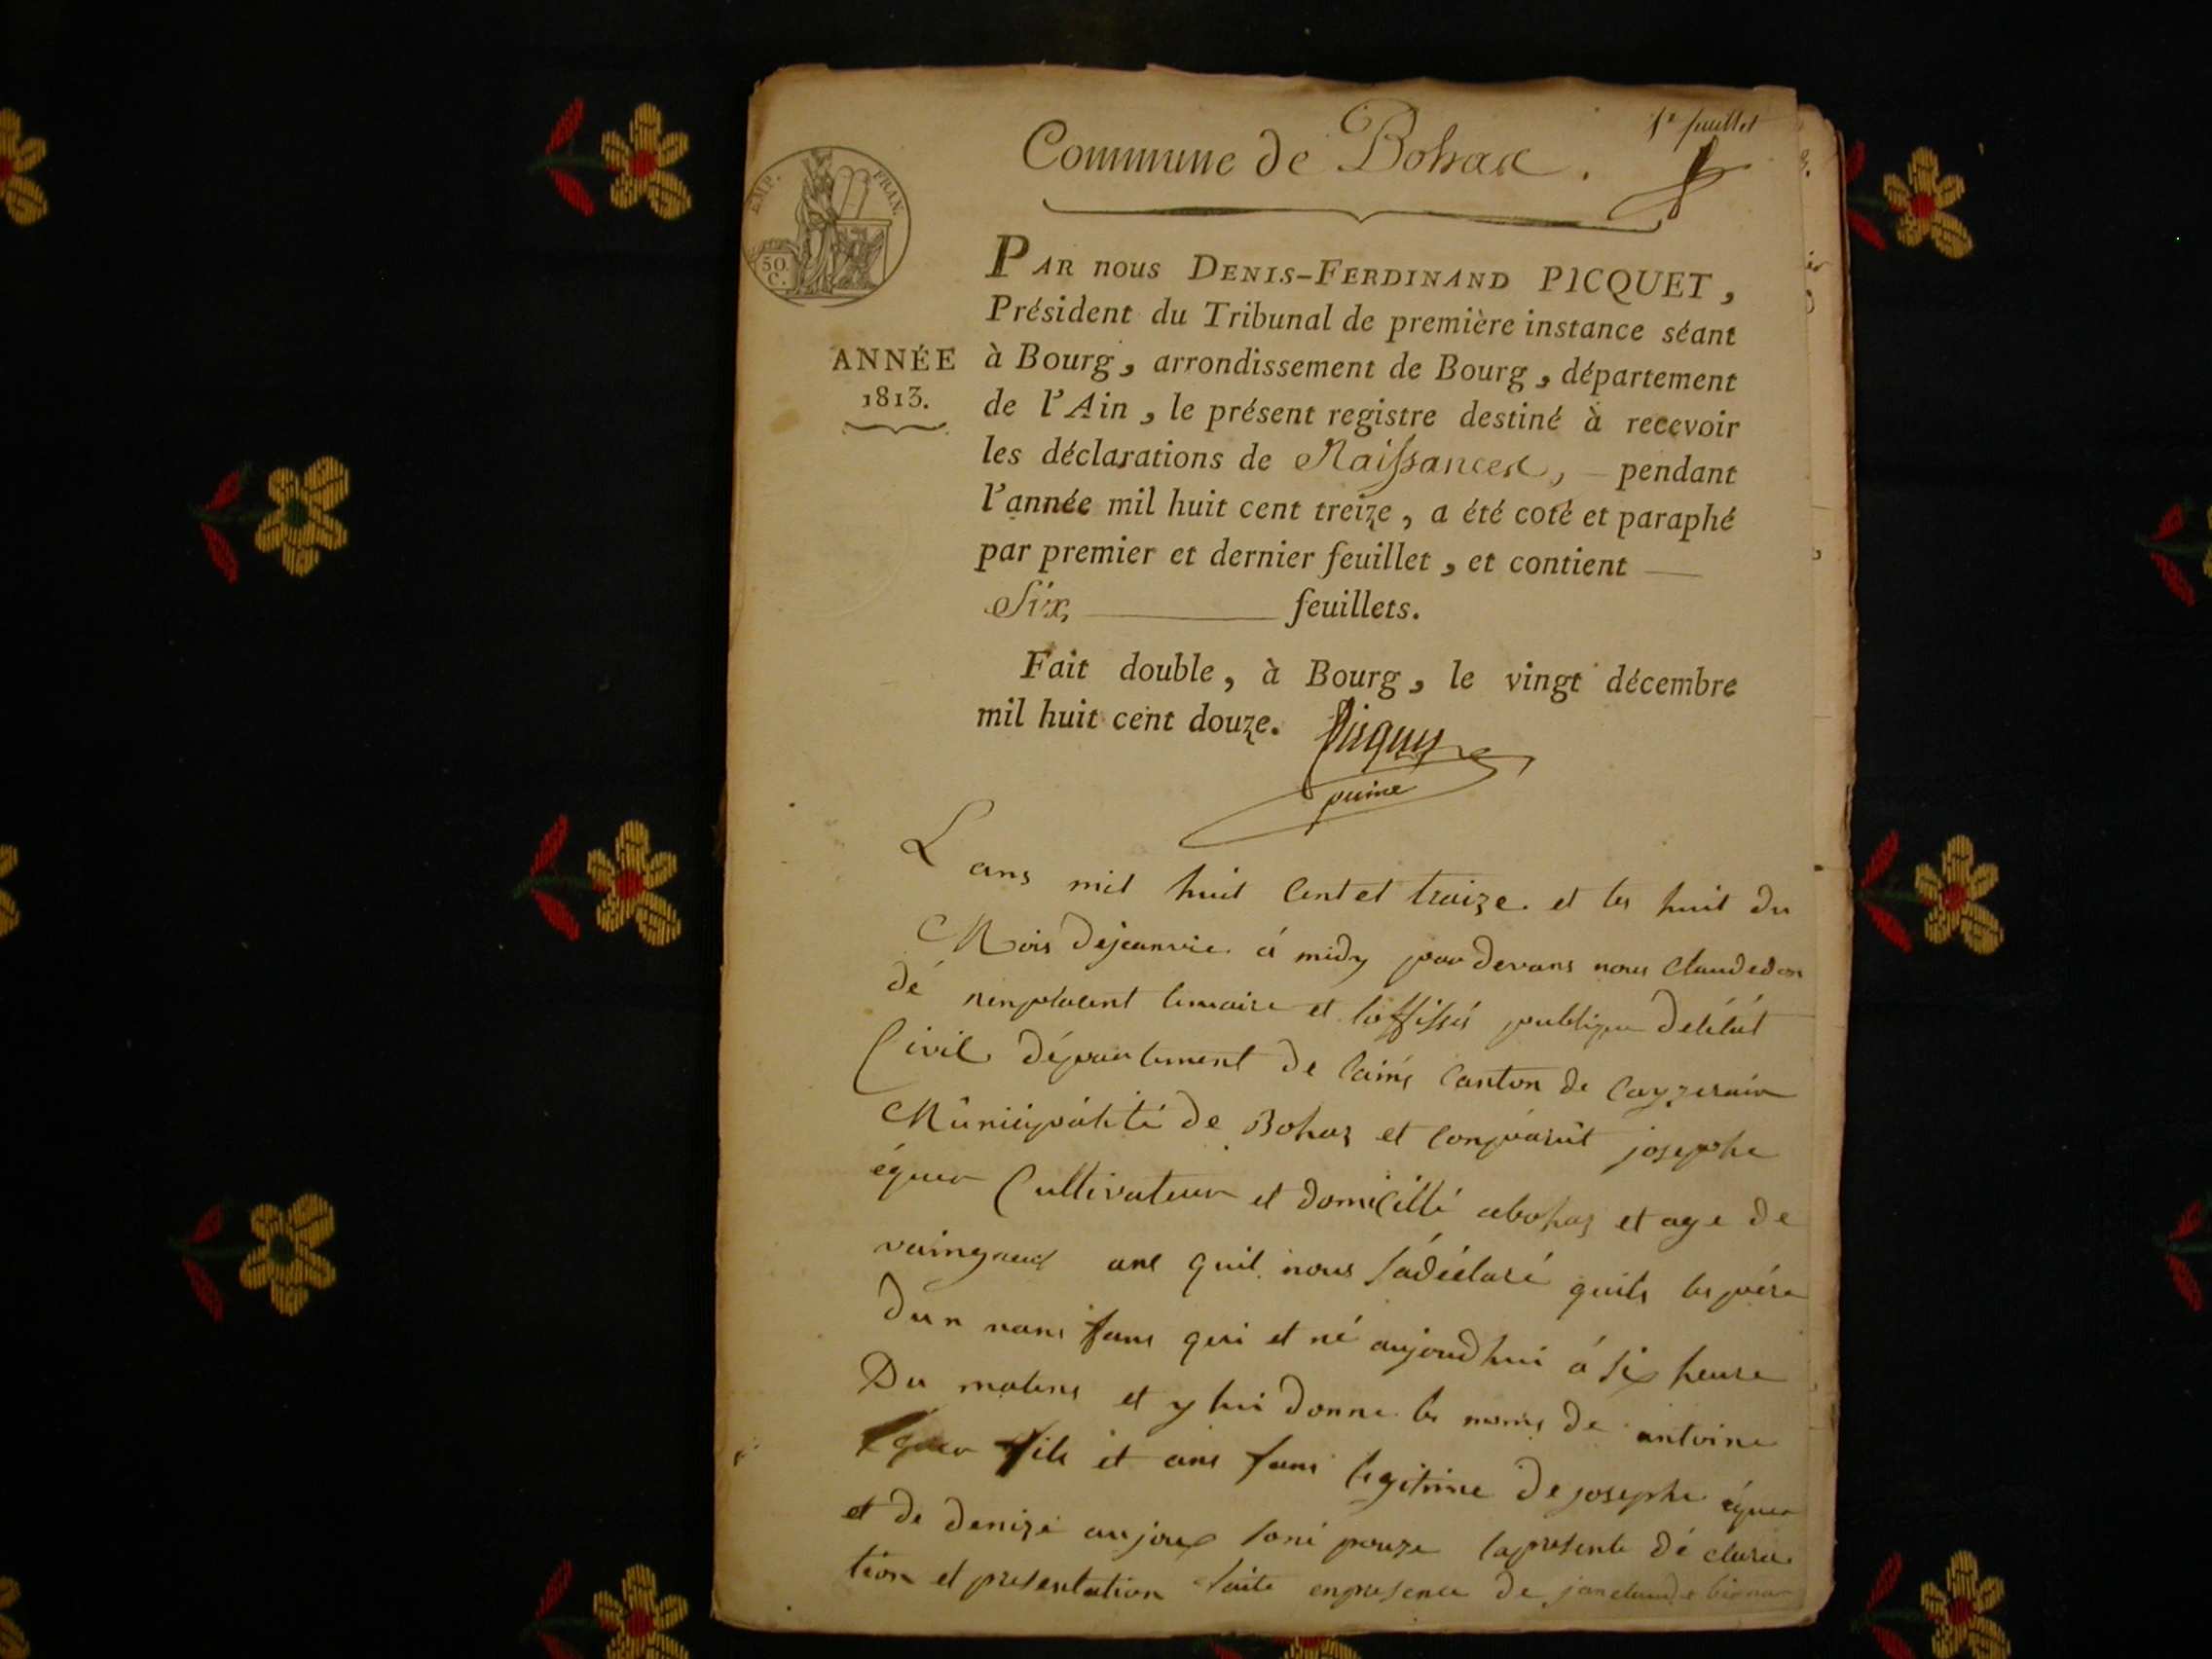 1r feuillet
Commune de Bohas.
EMP. FRAN.
50.
C.
ANNÉE
1813.
PAR nous DENIS-FERDINAND PICQUET,
Président du Tribunal de première instance séant
à Bourg, arrondissement de Bourg, département
de l'Ain, le présent registre destiné à recevoir
les déclarations de Naissances, — pendant
l'année mil huit cent treize, a été coté et paraphé
par premier et dernier feuillet, et contient —
Six, — feuillets.
Fait double, à Bourg, le vingt décembre
mil huit cent douze. Picquet
puiné
L ans mil huit Cent et traize et les huit du
Mois dejeanvie à midy par devans nous Claude
dé renplacent lemaire et loffissié publique deletat
Civil département de lains Canton de Cayzerain
Municipalité de Bohas et Conparût josephe
équer Cultivateur et domicillé abohas et age de
vaingneuf ans quil nous ladéclaré quils les père
dun nans fans qui et né aujoudhui á six heure
Du matins et y lui donne les noms de antoine
équer fils et ans fans legitime de josephe équer
et de denize aujoux soné pouze lapresente déclara
tion et presentation faite enpresence de janclaude